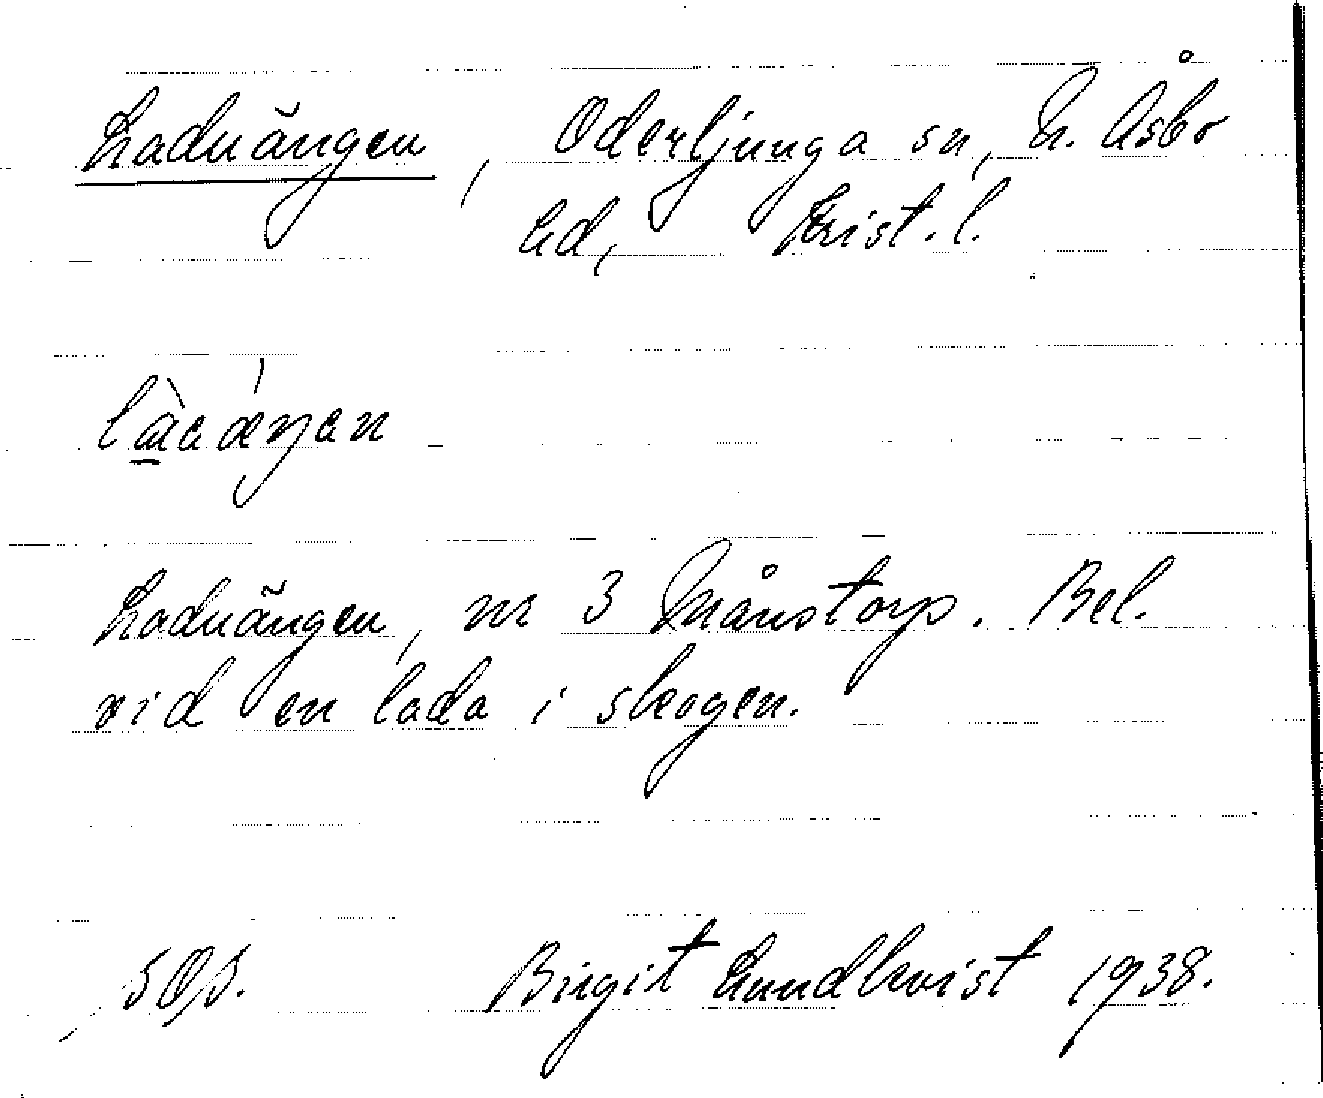 Laduängen, Oderljunga sn, N. Åsbo
hd, Krist. l.
Laduängen, nr 3 Månstorp. Bel.
vid en lada i skogen.
Birgit Lundkvist 1938.